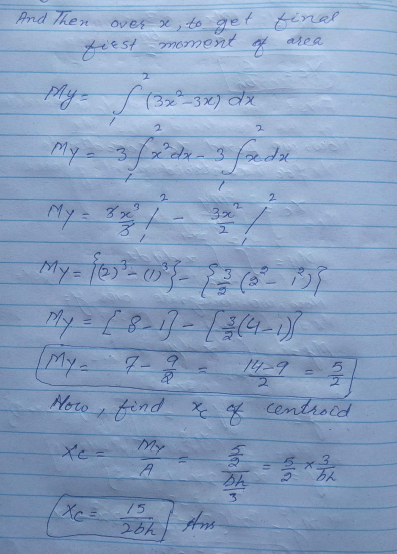 And Then over x, to get final
first moment of area
My = ∫₁² (3x²-3x) dx
My = 3∫₁² x²dx - 3∫₁² xdx
My = 3x³/3 |₁² - 3x²/2 |₁²
My = {(2)³-(1)³} - {3/2 (2²-1²)}
My = [8-1] - [3/2(4-1)}
My = 7 - 9/2 = 14-9/2 = 5/2
Now, find xc of centroid
xc = My/A = 5/2 / bh/3 = 5/2 × 3/bh
xc = 15/2bh Ans